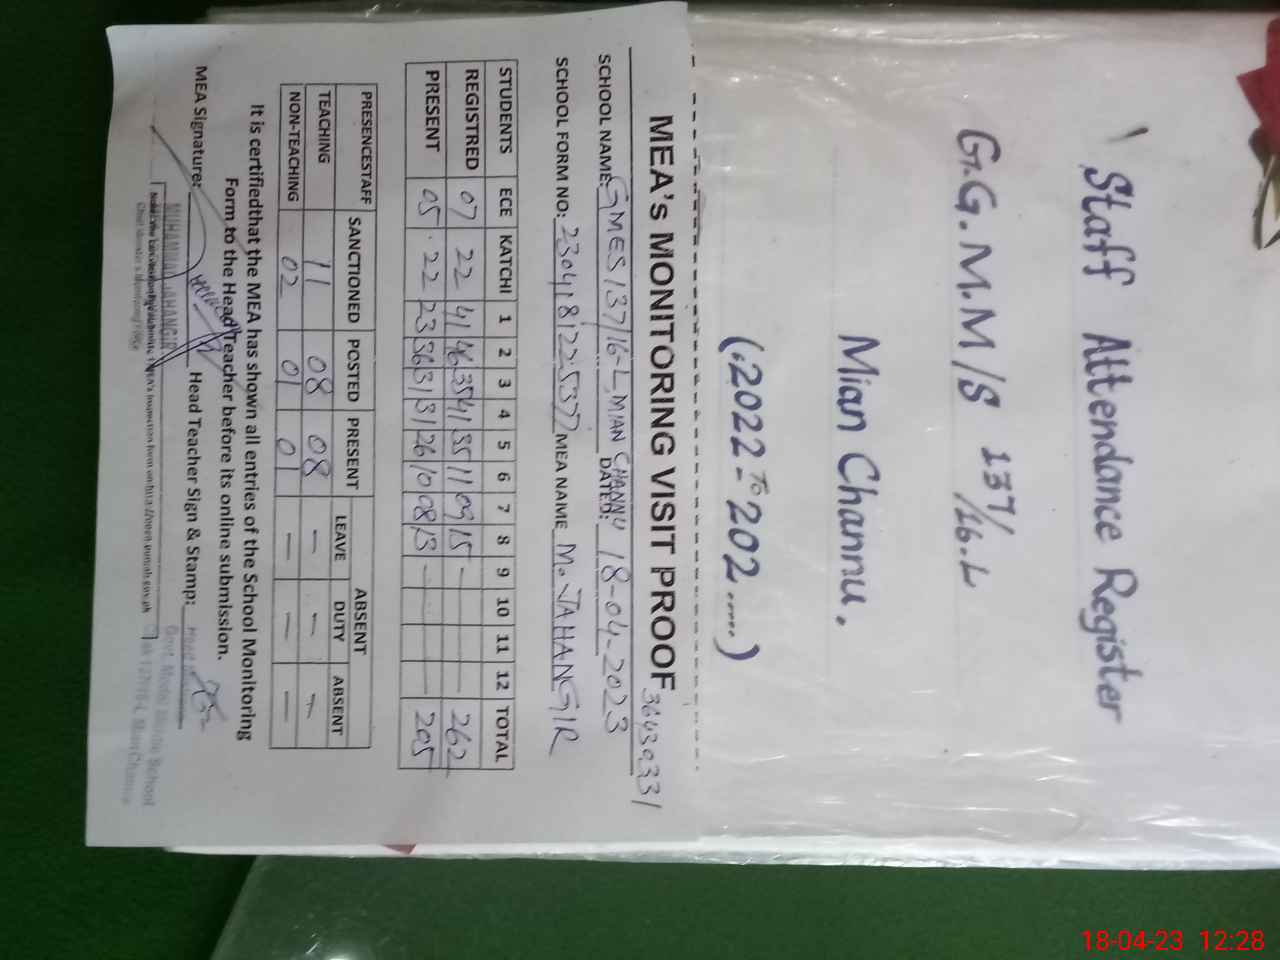 Staff Attendance Register
G.G.M.M/S 137/16.L
Mian Channu.
(2022 To 202.....)
MEA's MONITORING VISIT PROOF 36430331
SCHOOL NAME: GMES 137/16-L, MIAN CHANNU DATED: 18-04-2023
SCHOOL FORM NO: 2304181225377 MEA NAME M. JAHANGIR
STUDENTS ECE KATCHI 1 2 3 4 5 6 7 8 9 10 11 12 TOTAL
REGISTRED 07 22 41 46 35 41 35 11 09 15 - 262
PRESENT 05 22 23 36 31 31 26 10 08 13 - 205
PRESENCESTAFF SANCTIONED POSTED PRESENT ABSENT
LEAVE DUTY ABSENT
TEACHING 11 08 08 - - -
NON-TEACHING 02 01 01 - - -
It is certifiedthat the MEA has shown all entries of the School Monitoring
Form to the Head Teacher before its online submission.
MEA Signature: Head Teacher Sign & Stamp:
MUHAMMAD JAHANGIR
Govt. Model Middle School
Chak 137/16-L Mian Channu
18-04-23 12:28